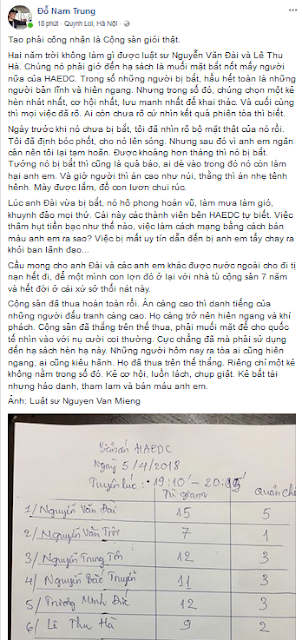 Đỗ Nam Trung
18 phút · Quỳnh Lôi, Hà Nội ·
Tao phải công nhận là Cộng sản giỏi thật.
Hai năm trời không làm gì được luật sư Nguyễn Văn Đài và Lê Thu
Hà. Chúng nó phải giở đến hạ sách là muối mặt bắt nốt mấy người
nữa của HAEDC. Trong số những người bị bắt, hầu hết toàn là những
người bản lĩnh và hiên ngang. Nhưng trong số đó, chúng chọn một kẻ
hèn nhát nhất, cơ hội nhất, lưu manh nhất để khai thác. Và cuối cùng
thì mọi việc đã rõ. Ai còn chưa rõ cứ nhìn kết quả phiên tòa thì biết.
Ngày trước khi nó chưa bị bắt, tôi đã nhìn rõ bộ mặt thật của nó rồi.
Tôi đã định bóc phốt, cho nó lên sóng. Nhưng sau đó vì anh em ngăn
cản nên tôi lại tạm hoãn. Được khoảng hơn tháng thì nó bị bắt.
Tưởng nó bị bắt thì cũng là quả báo, ai dè vào trong đó nó còn làm
hại anh em. Và giờ người thì án cao như núi, thằng thì án nhẹ tênh
hênh. Mày được lắm, đồ con lươn chui rúc.
Lúc anh Đài vừa bị bắt, nó hô phong hoán vũ, làm mưa làm gió,
khuynh đảo mọi thứ. Cái này các thành viên bên HAEDC tự biết. Việc
thâm hụt tiền bạc như thế nào, việc làm cách mạng bằng cách bán
máu anh em ra sao? Việc bị mất uy tín dẫn đến bị anh em tẩy chay ra
khỏi ban lãnh đạo...
Cầu mong cho anh Đài và các anh em khác được nước ngoài cho đi tị
nạn hết đi, để một mình con lợn đó ở lại với nhà tù cộng sản 7 năm
và hết đời ở cái xứ sở thối nát này.
Cộng sản đã thua hoàn toàn rồi. Án càng cao thì danh tiếng của
những người đấu tranh càng cao. Họ càng trở nên hiên ngang và khí
phách. Cộng sản đã thắng trên thế thua, phải muối mặt để cho quốc
tế nhìn vào với nụ cười coi thường. Cực chẳng đã mà phải sử dụng
đến hạ sách hèn hạ này. Những người hôm nay ra tòa ai cũng hiên
ngang, ai cũng kiêu hãnh. Họ đã thua trên thế thắng. Riêng chỉ một kẻ
không nằm trong số đó. Kẻ cơ hội, luồn lách, chụp giật. Kẻ bất tài
nhưng háo danh, tham lam và bán máu anh em.
Ảnh: Luật sư Nguyen Van Mieng
Bản án HAEDC
Ngày 5/4/2018
Tuyên lúc: 19:10' – 20:15'
Tù giam Quản chế
1/ Nguyễn Văn Đài 15 5
2/ Nguyễn Văn Trội 7 1
3/ Nguyễn Trung Tôn 12 3
4/ Nguyễn Bắc Truyển 11 3
5/ Trương Minh Đức 12 3
6/ Lê Thu Hà 9 2